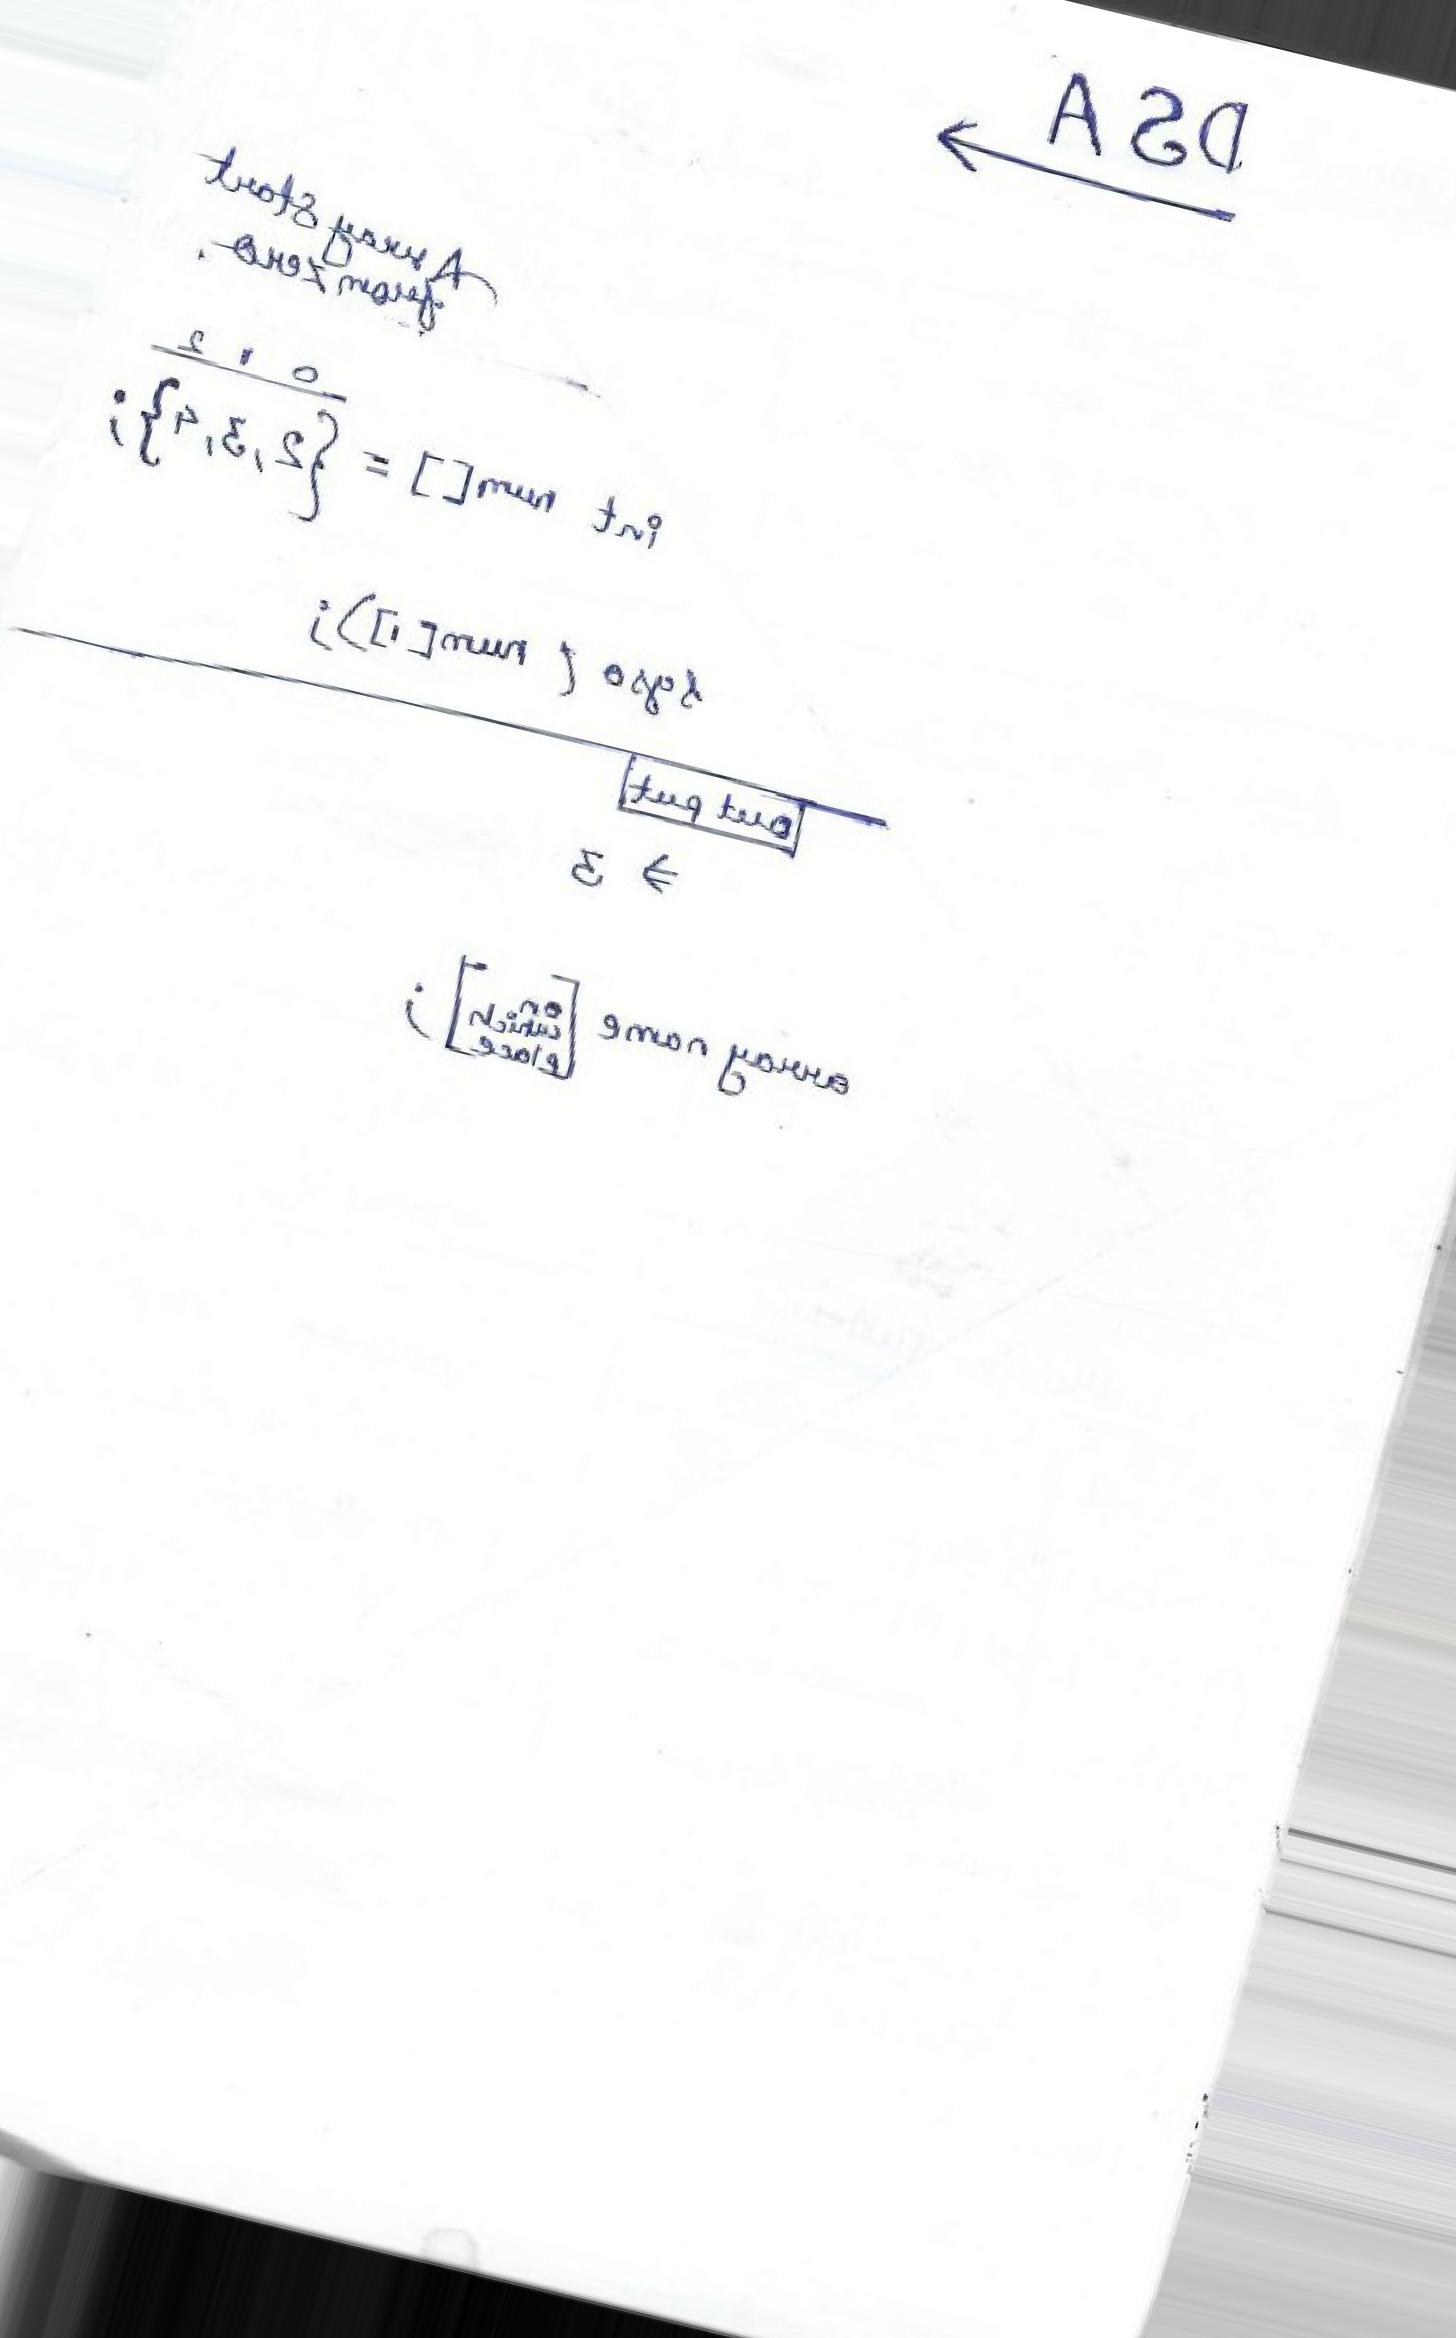 DSA
Array start
from zero.
0 1 2
int num[] = {2,3,4};
( num[1]);
out put
→ 3
array name [on
which
place];